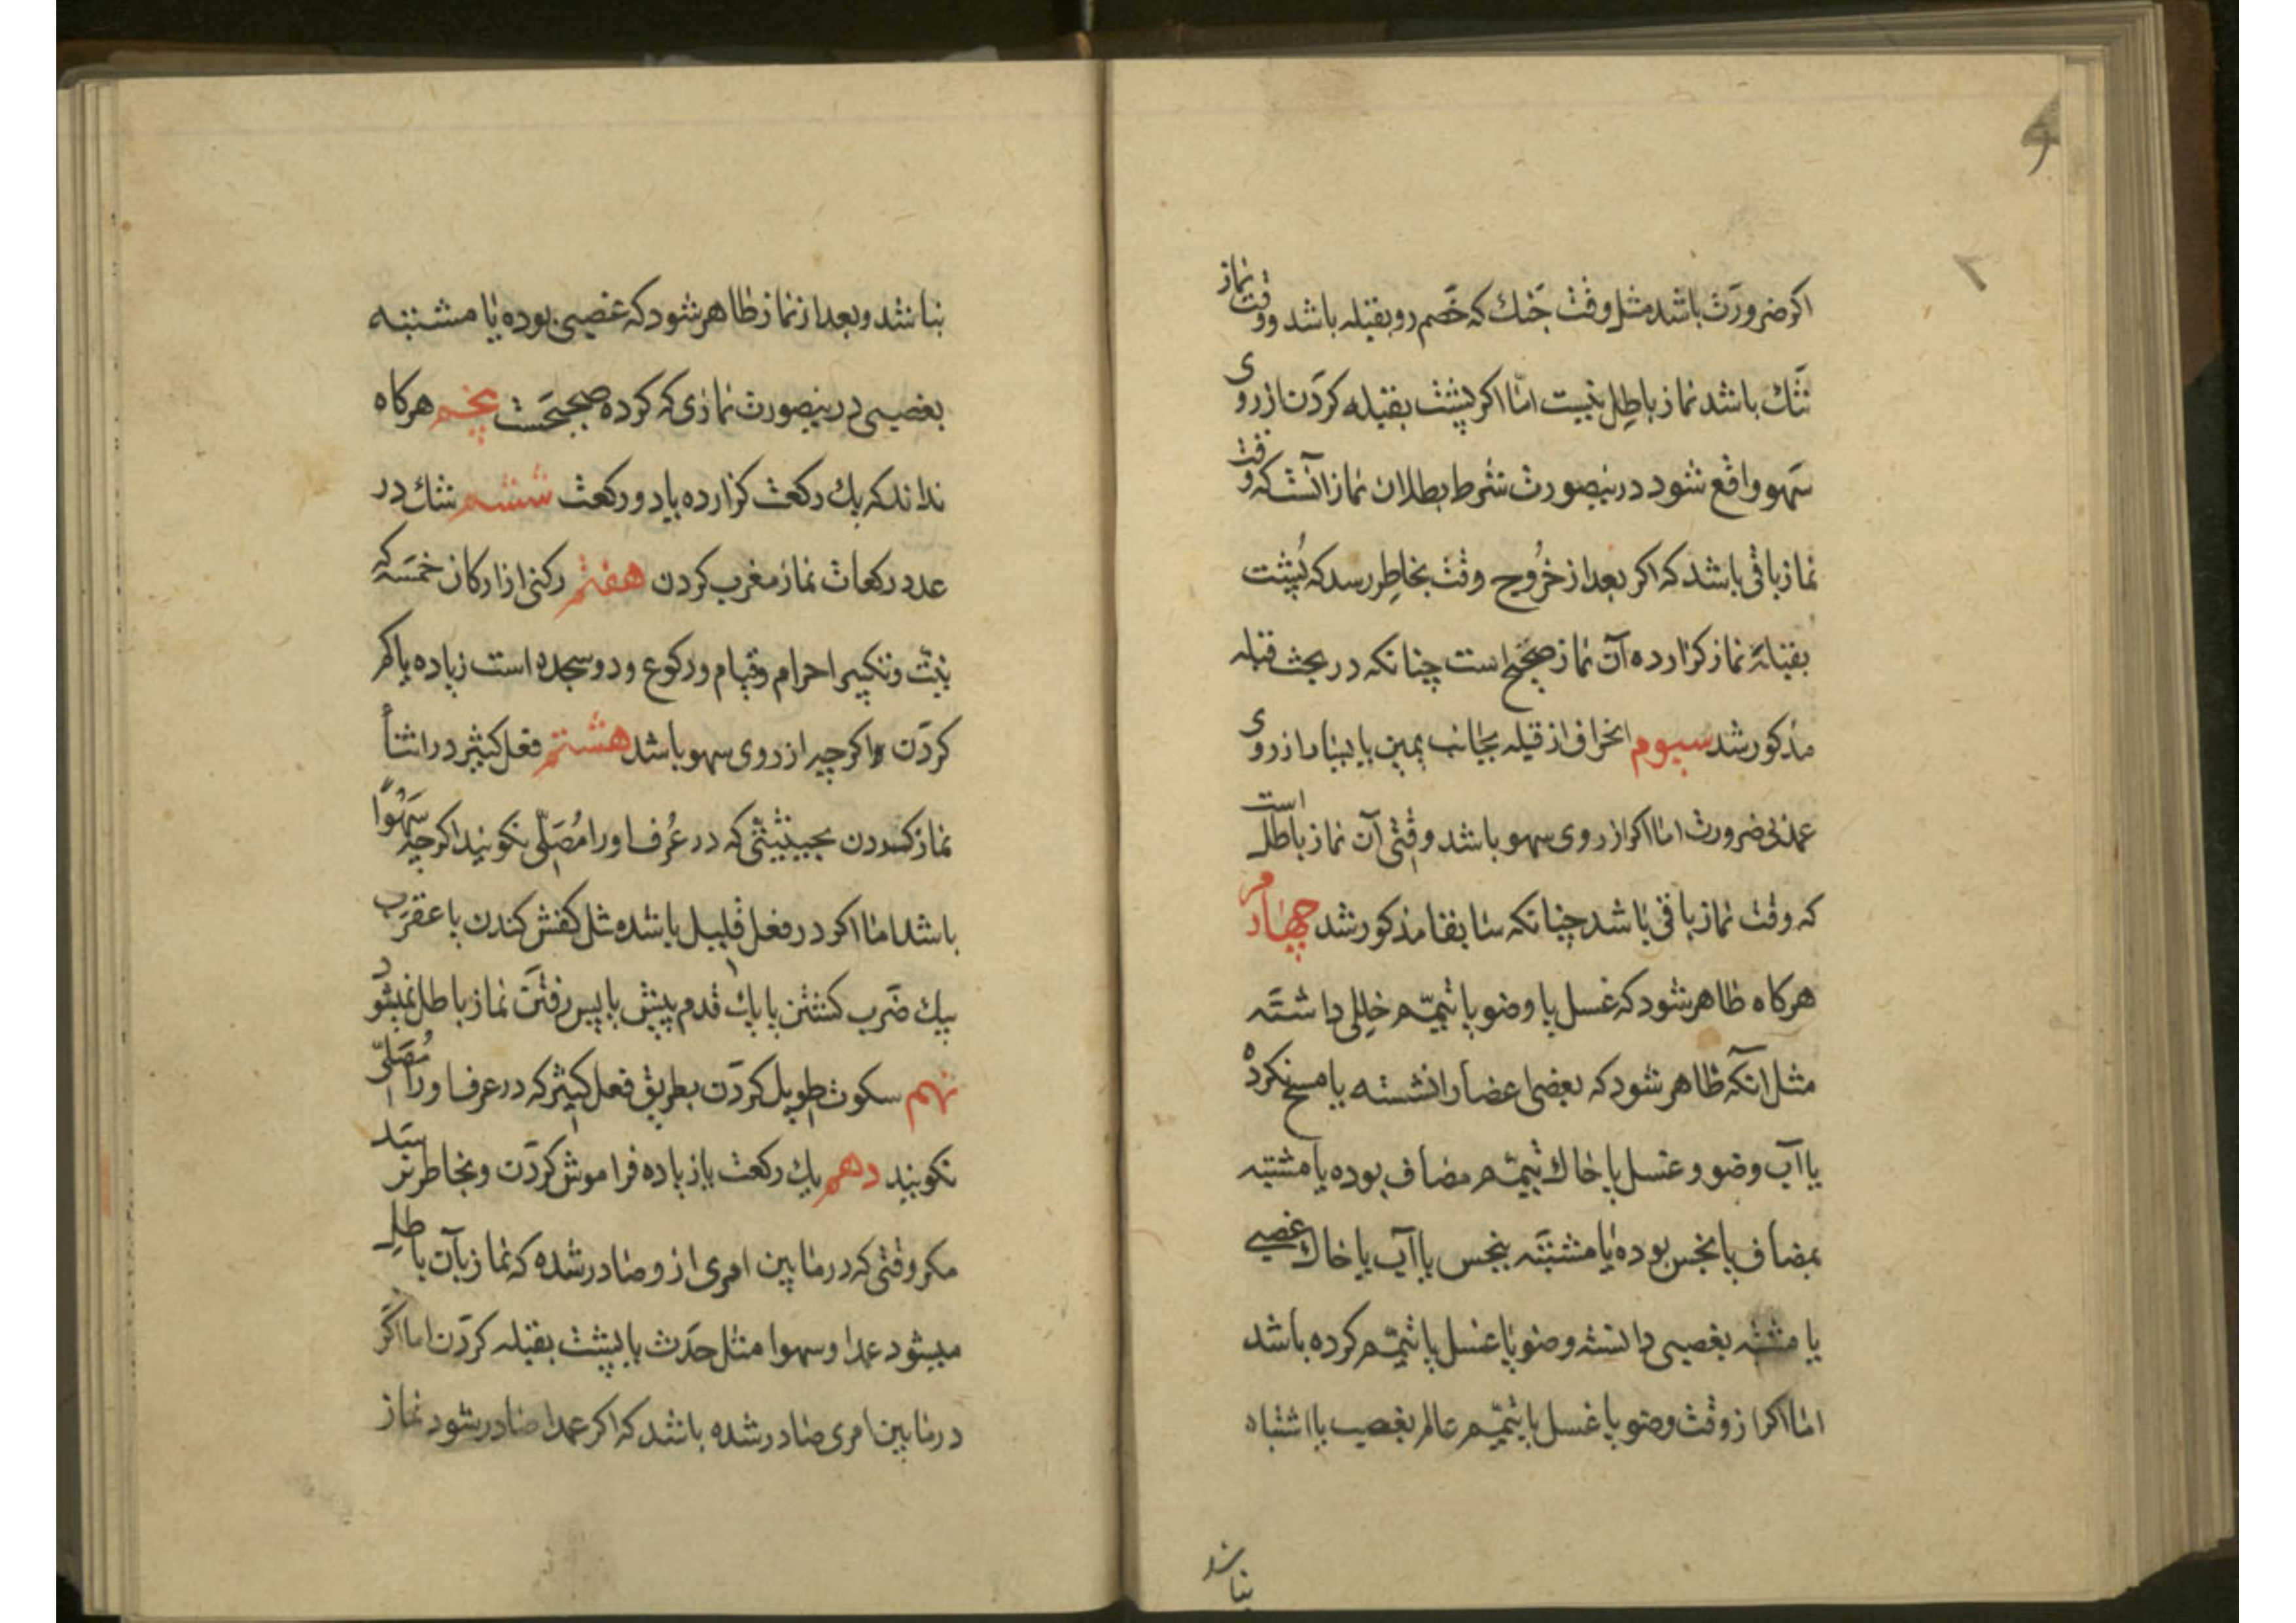 اکر ضرورت باشد مثل وقت جنك که خصم رو بقبله باشد و وقت نماز
تنك باشد نماز باطل نیست امّا اکر پشت بقبله کردن از روی
سهو واقع شود درینصورت شرط بطلان نماز آنست که وقت
نماز باقی باشد که اکر بعد از خروج وقت بخاطر رسد که پشت
بقبله نماز کزارده آن نماز صحیح است چنانکه در بحث قبله
مذکور شد سیوم انحراف از قبله بجانب یمین یا یسار از روی
عمد بی ضرورت اما اکر از روی سهو باشد وقتی آن نماز باطل است
که وقت نماز باقی باشد چنانکه سابقا مذکور شد چهارم
هرکاه ظاهر شود که غسل یا وضو یا تیمّم خللی داشته
مثل آنکه ظاهر شود که بعضی اعضا را نشسته یا مسح نکرده
یا آب وضو و غسل یا خاك تیمّم مضاف بوده یا مشتبه
بمضاف یا نجس بوده یا مشتبه بنجس یا آب یا خاك غصبی
یا مشتبه بغصبی دانسته وضو یا غسل یا تیمّم کرده باشد
اما اکر از وقت وضو یا غسل یا تیمّم عالم بغصب یا اشتباه
نباشد
نباشد و بعد از نماز ظاهر شود که غصبی بوده یا مشتبه
بغصبی درینصورت نمازی که کرده صحیحست پنجم هرکاه
نداند که یك رکعت کزارده یا دو رکعت ششم شك در
عدد رکعات نماز مغرب کردن هفتم رکنی از ارکان خمسه که
نیّت و تکبیر احرام و قیام و رکوع و دو سجده است زیاده یا کم
کردن و اکر چه از روی سهو باشد هشتم فعل کثیر در اثنأ
نماز کردن بحیثیّتی که در عُرف او را مُصَلّی نکویند اکر چه سَهْوًا
باشد اما اکر در فعل قلیل باشد مثل کفش کندن یا عقرب
بیك ضَرب کشتن یا یك قدم پیش یا پس رفتن نماز باطل نمیشود
نهم سکوت طویل کردن بطریق فعل کثیر که در عرف او را مُصَلّی
نکویند دهم یك رکعت یا زیاده فراموش کردن و بخاطر نرسید
مکر وقتی که در مابین امری از و صادر شده که نماز بآن باطل
میشود عمدا و سهوا مثل حدث یا پشت بقبله کردن اما اکر
در مابین امری صادر شده باشد که اکر عمدا صادر شود نماز